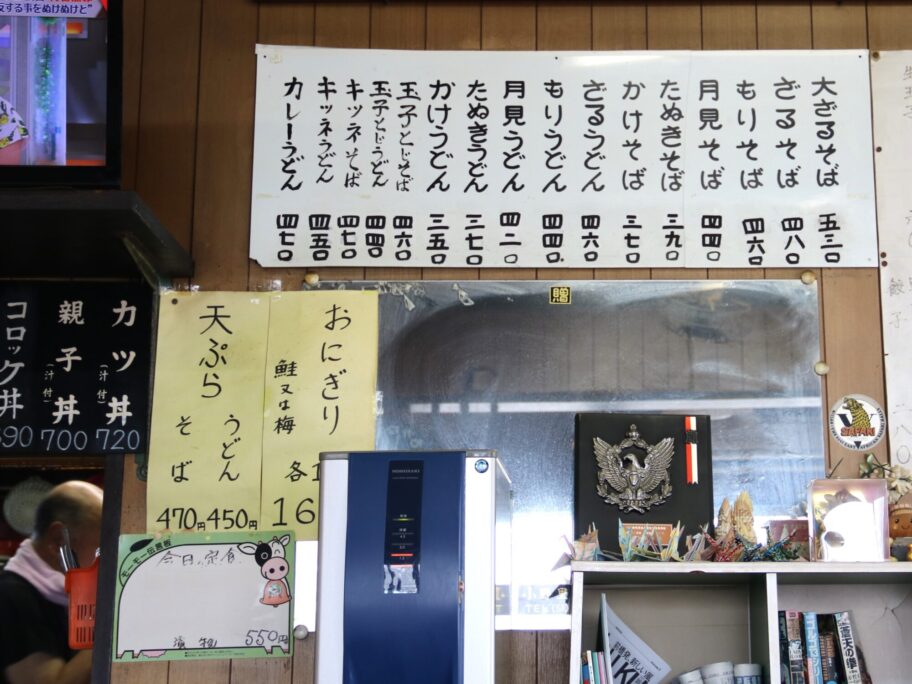 大ざるそば 五三〇
ざるそば 四八〇
もりそば 四六〇
月見そば 四四〇
たぬきそば 三九〇
かけそば 三七〇
ざるうどん 四六〇
もりうどん 四四〇
月見うどん 四二〇
たぬきうどん 三七〇
かけうどん 三五〇
玉子とじそば 四六〇
玉子とじうどん 四四〇
キツネそば 四七〇
キツネうどん 四五〇
カレーうどん 四七〇
する事をぬけぬけと"
カツ丼 (汁付) 720
親子丼 (汁付) 700
コロッケ丼 690
おにぎり
鮭又は梅
各1
16
天ぷら
うどん 450円
そば 470円
贈
モーモー伝言板
今日の定食
550円
HOSHIZAKI
SAFARI